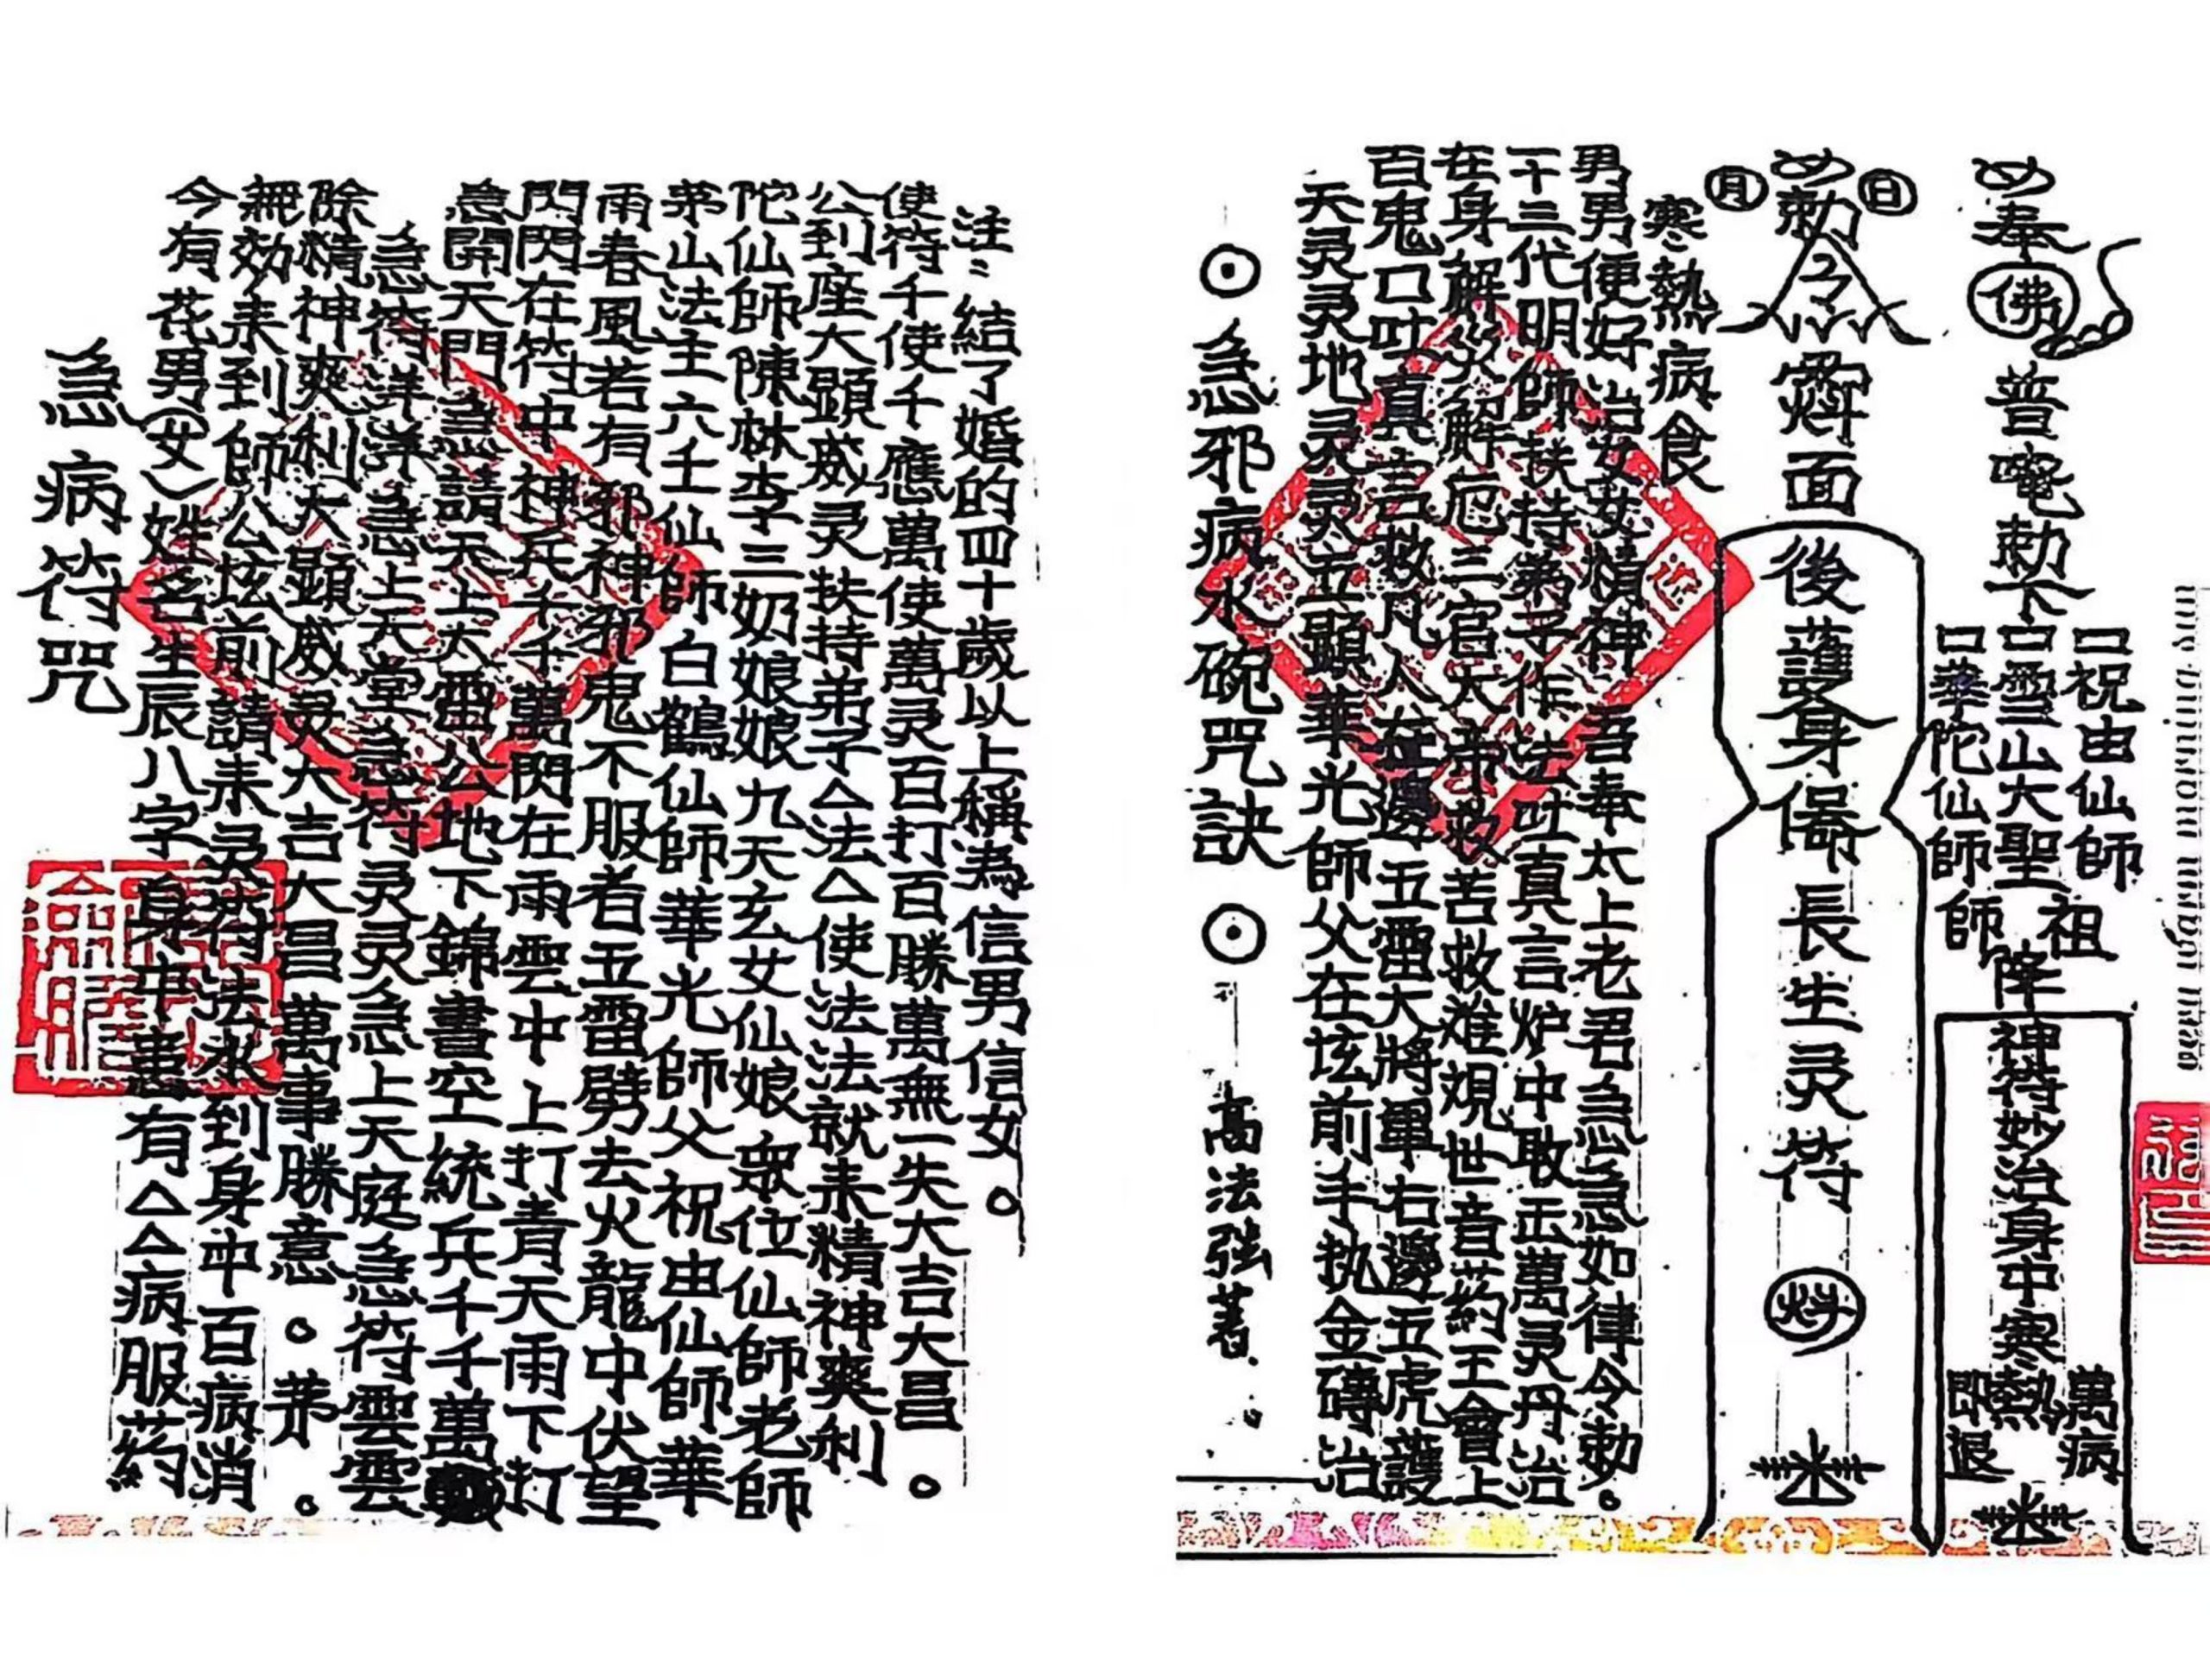 急病符咒
今有花男(女)姓名生辰八字身中患有△△病服药
無効来到師公坛前請来灵符法水到身中百病消
除精神爽利大顯威灵大吉大昌萬事勝意。茅。
急符洋洋急上天堂急符灵灵急上天庭急符雲雲
急開天門急請天上太雷公地下錦書空統兵千千萬
閃閃在符中神兵千千萬閃在雨雲中上打青天雨下打
雨春風若有邪神邪鬼不服者五雷劈去火龍中伏望
茅山法主六壬仙師白鶴仙師華光師父祝由仙師華
陀仙師陳林李三奶娘娘九天玄女仙娘眾位仙師老師
公到座大顯威灵扶持弟子△法△使法法就来精神爽利
使符千使千應萬使萬灵百打百勝萬無一失大吉大昌。
注：結了婚的四十歲以上稱為信男信女。
⊙急邪病水碗咒訣⊙ 高法強著
天灵灵地灵灵五顯華光師父在坛前手执金磚治
百鬼口吐真言救凡人在邊五雷大將軍右邊五虎護
在身解災解厄三官大帝救苦救难覌世音葯王會上
十三代明師扶持弟子作法吐真言炉中敢正萬灵丹治
男男便好治女女精神吾奉太上老君急急如律令勅。
寒熱病食
月 勅 日
面後護身保長生灵符
奉佛普唵勅下
口祝由仙師
口雪山大聖
口華陀仙師
祖師降
神符妙治身中寒熱
萬病即退